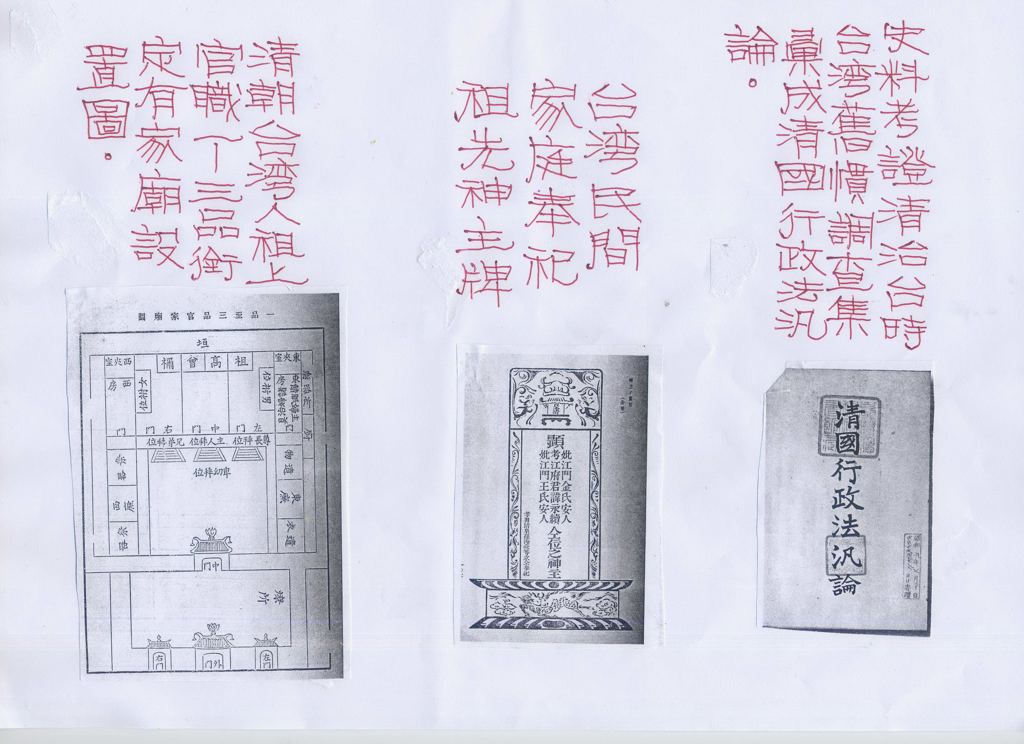 史料考證清治台時
台湾舊慣調查集
彙成清國行政法汎
論。
台湾民間
家庭奉祀
祖先神主牌
清朝台湾人祖上
官職一丅三品銜
定有家廟設
置圖。
清國行政法汎論
妣江門金氏安人
顯考江府君諱永續
妣江門王氏安人
仝位之神主
一品至三品官家廟圖
垣
東夾室
祖
高
曾
禰
西夾室
西房
女拊位
男拊位
左門
中門
右門
門
尊長拜位
主人拜位
兄弟拜位
卑幼拜位
東
西
中門
燎所
左門
外門
右門